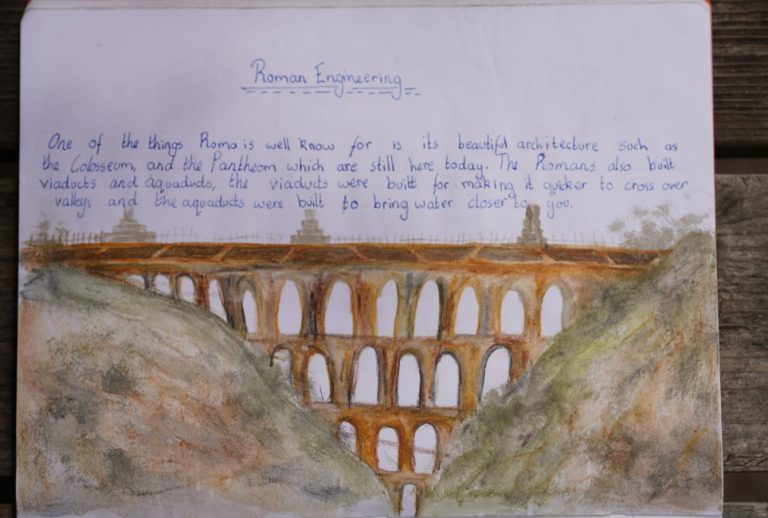 Roman Engineering
One of the things Roma is well know for is its beautiful architecture such as
the Colosseum, and the Pantheom which are still here today. The Romans also built
viaducts and aquaducts, the viaducts were built for making it quicker to cross over
valleys and the aquaducts were built to bring water closer to you.